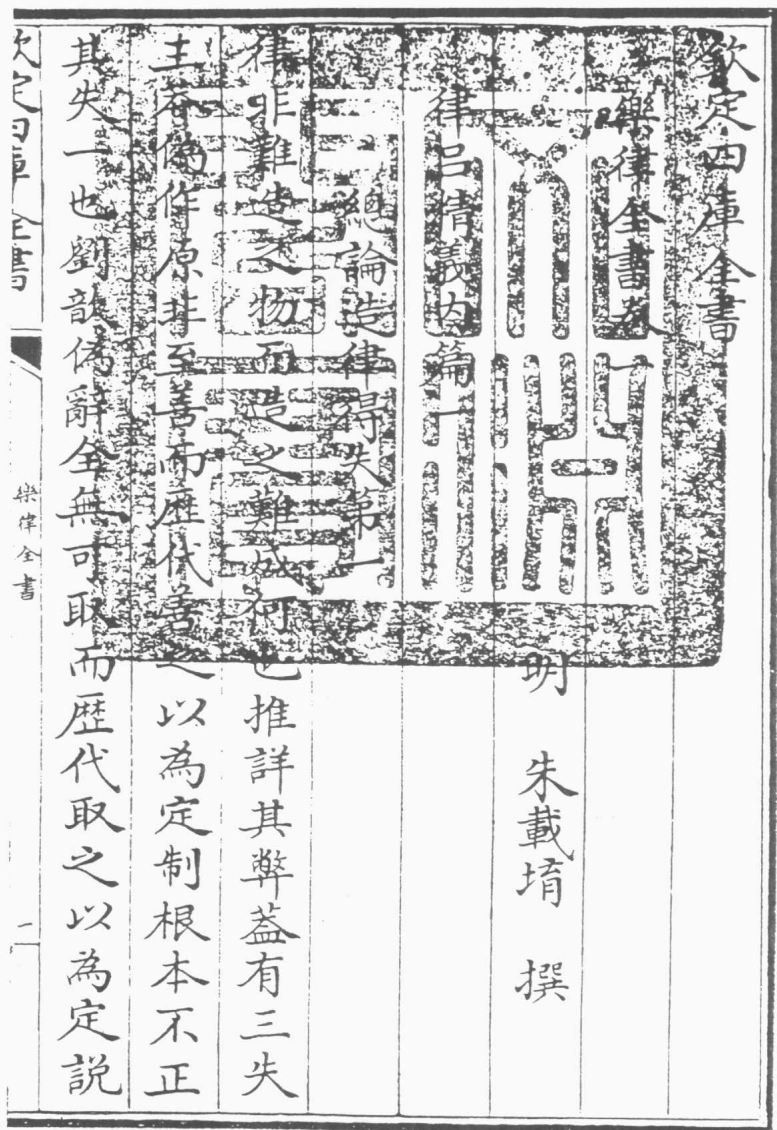 欽定四庫全書
樂律全書卷一
明 朱載堉 撰
律呂精義內篇一
總論造律得失第一
律非難造之物而造之難成何也推詳其弊蓋有三失
王莽偽作原非至善而歷代善之以為定制根本不正
其失一也劉歆偽辭全無可取而歷代取之以為定説
欽定四庫全書
樂律全書
二